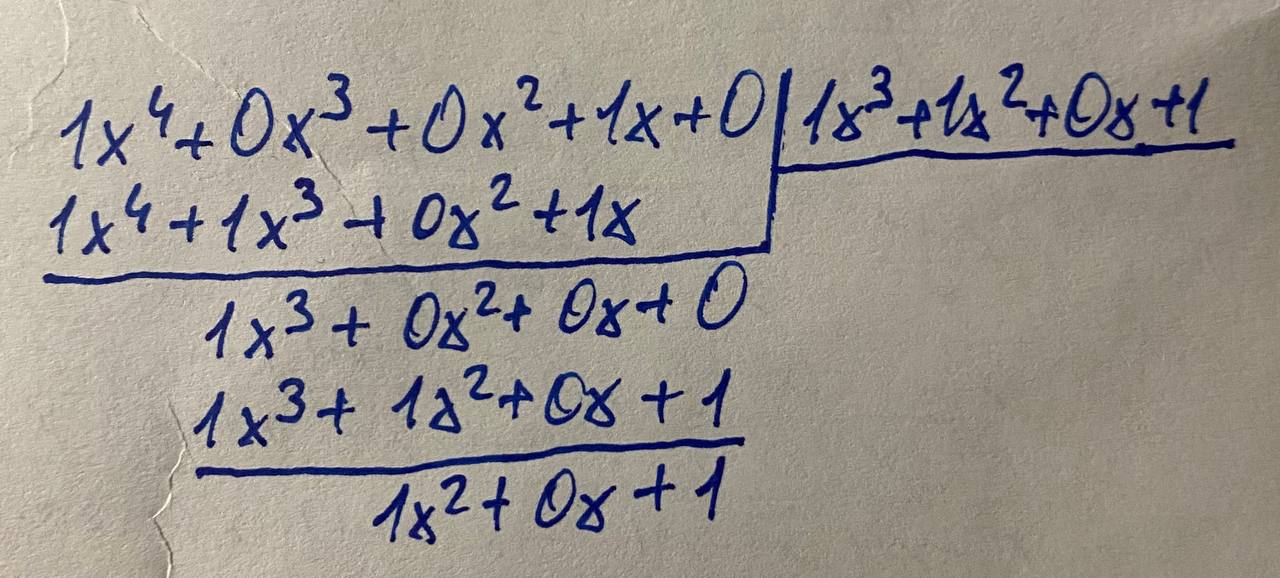 1x⁴+0x³+0x²+1x+0 | 1x³+1x²+0x+1
1x⁴+1x³+0x²+1x
1x³+0x²+0x+0
1x³+1x²+0x+1
1x²+0x+1